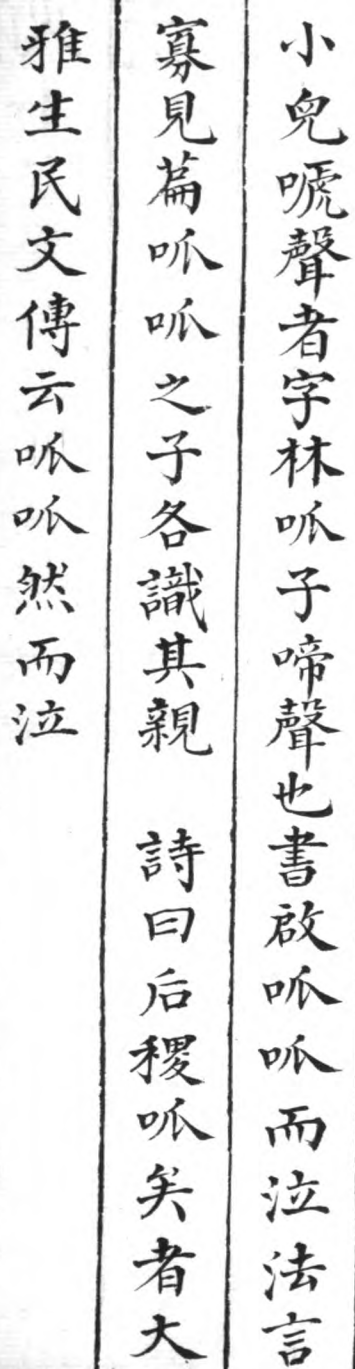 小兒嗁聲者字林呱子啼聲也書啟呱呱而泣法言
寡見篇呱呱之子各識其親　詩曰后稷呱矣者大
雅生民文傳云呱呱然而泣